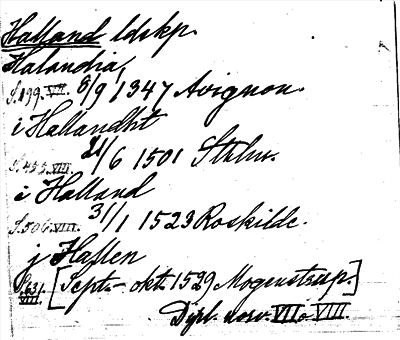 Halland ldskp.
Halandia,
S. 199. VII. 8/9 1347 Avignon.
i Hallandht
S. 455. VIII. 21/6 1501 Sthlm.
i Halland
S. 506. VIII. 31/1 1523 Roskilde.
j Hallen
S. 631. VIII. [Sept.-okt. 1529 Mogenstrup.]
Dipl. norv. VII o. VIII.